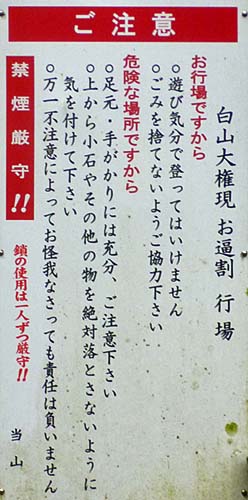 ご注意
白山大権現 お逼割 行場
お行場ですから
○遊び気分で登ってはいけません
○ごみを捨てないようご協力下さい
危険な場所ですから
○足元・手がかりには充分、ご注意下さい
○上から小石やその他の物を絶対落とさないように
気を付けて下さい
○万一不注意によってお怪我なさっても責任は負いません
禁煙厳守!!
鎖の使用は一人ずつ厳守!!
当山